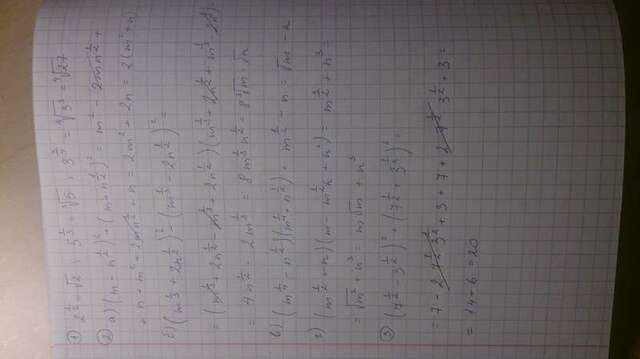 ① 2^(1/2) = √2 ; 5^(1/3) = ∛5 ; 3^(3/4) = ⁴√3³ = ⁴√27
② а) (m − n^(1/2))² + (m + n^(1/2))² = m² − 2mn^(1/2) +
+ n + m² + 2mn^(1/2) + n = 2m² + 2n = 2(m² + n)
б) (m^(1/3) + 2n^(1/2))² − (m^(1/3) − 2n^(1/2))² =
= (m^(1/3) + 2n^(1/2) − m^(1/3) + 2n^(1/2))(m^(1/3) + 2n^(1/2) + m^(1/3) − 2n^(1/2)) =
= 4n^(1/2) · 2m^(1/3) = 8m^(1/3)n^(1/2) = 8∛m · √n
в) (m^(1/4) − n^(1/2))(m^(1/4) + n^(1/2)) = m^(1/2) − n = √m − n
г) (m^(1/2) + n)(m − m^(1/2)n + n²) = m^(3/2) + n³ =
= √m³ + n³ = m√m + n³
③ (7^(1/2) − 3^(1/2))² + (7^(1/2) + 3^(1/2))² =
= 7 − 2·7^(1/2)·3^(1/2) + 3 + 7 + 2·7^(1/2)·3^(1/2) + 3 =
= 14 + 6 = 20